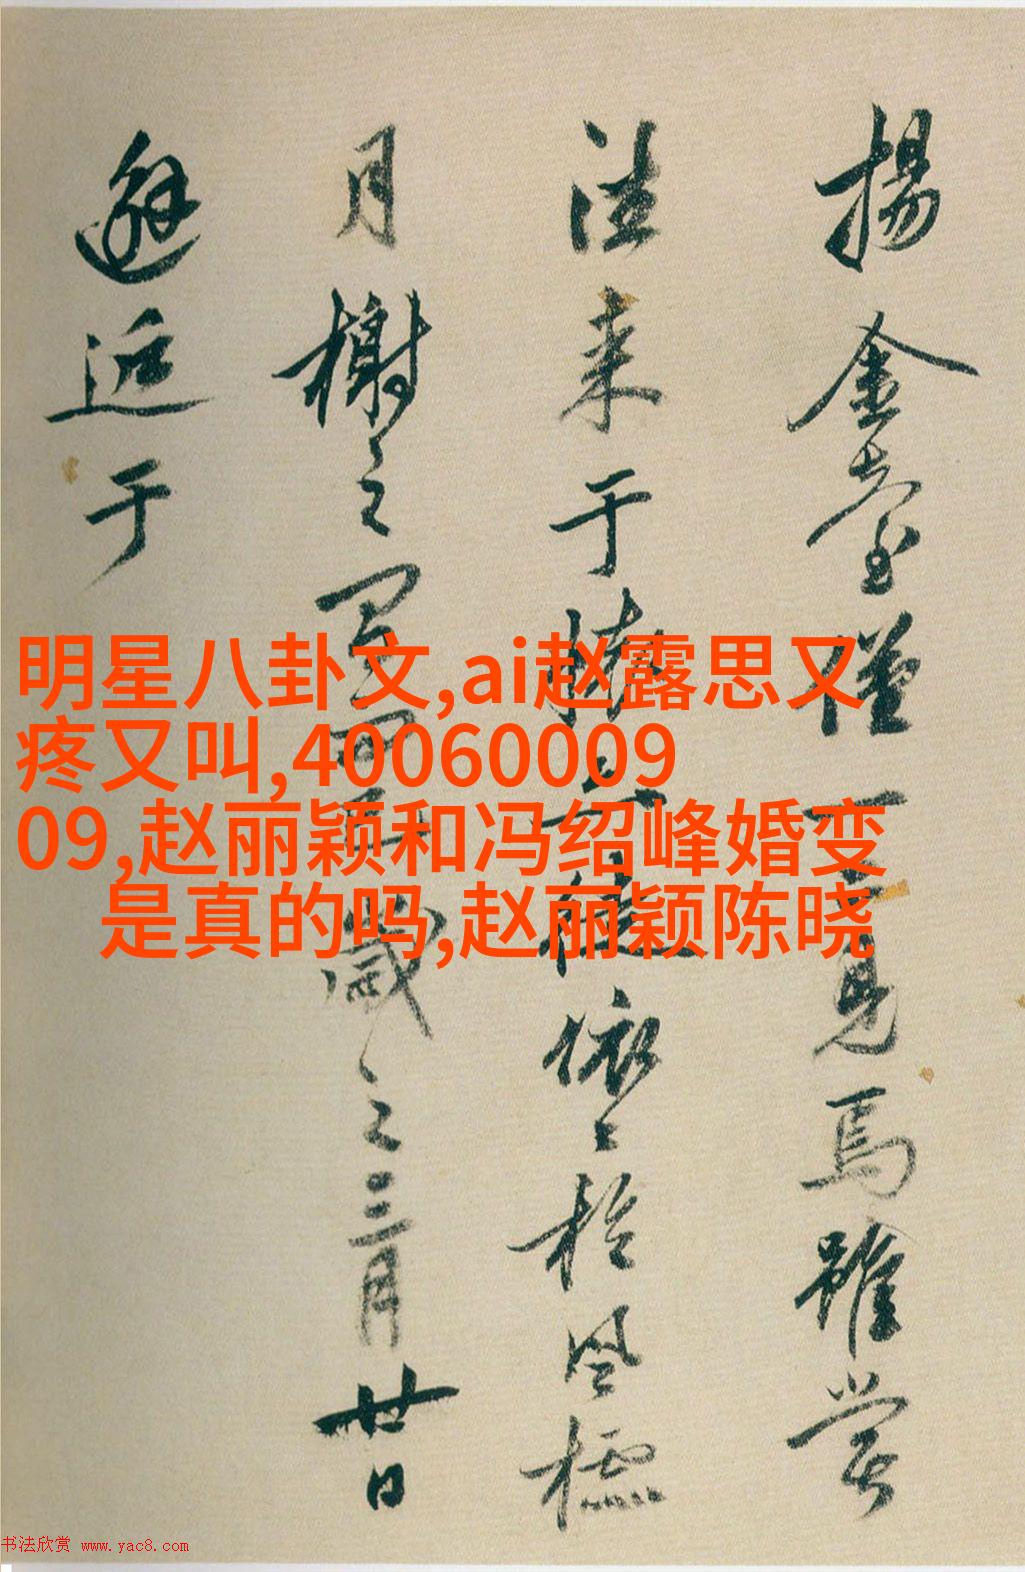 揚金臺僅一見焉雖嘗
往来于徒依々於風標
月榭之歲之三月廿日
邂逅于
明星八卦文,ai赵露思又
疼又叫,400600009
09,赵丽颖和冯绍峰婚变
是真的吗,赵丽颖陈晓
书法欣赏 www.yac8.com